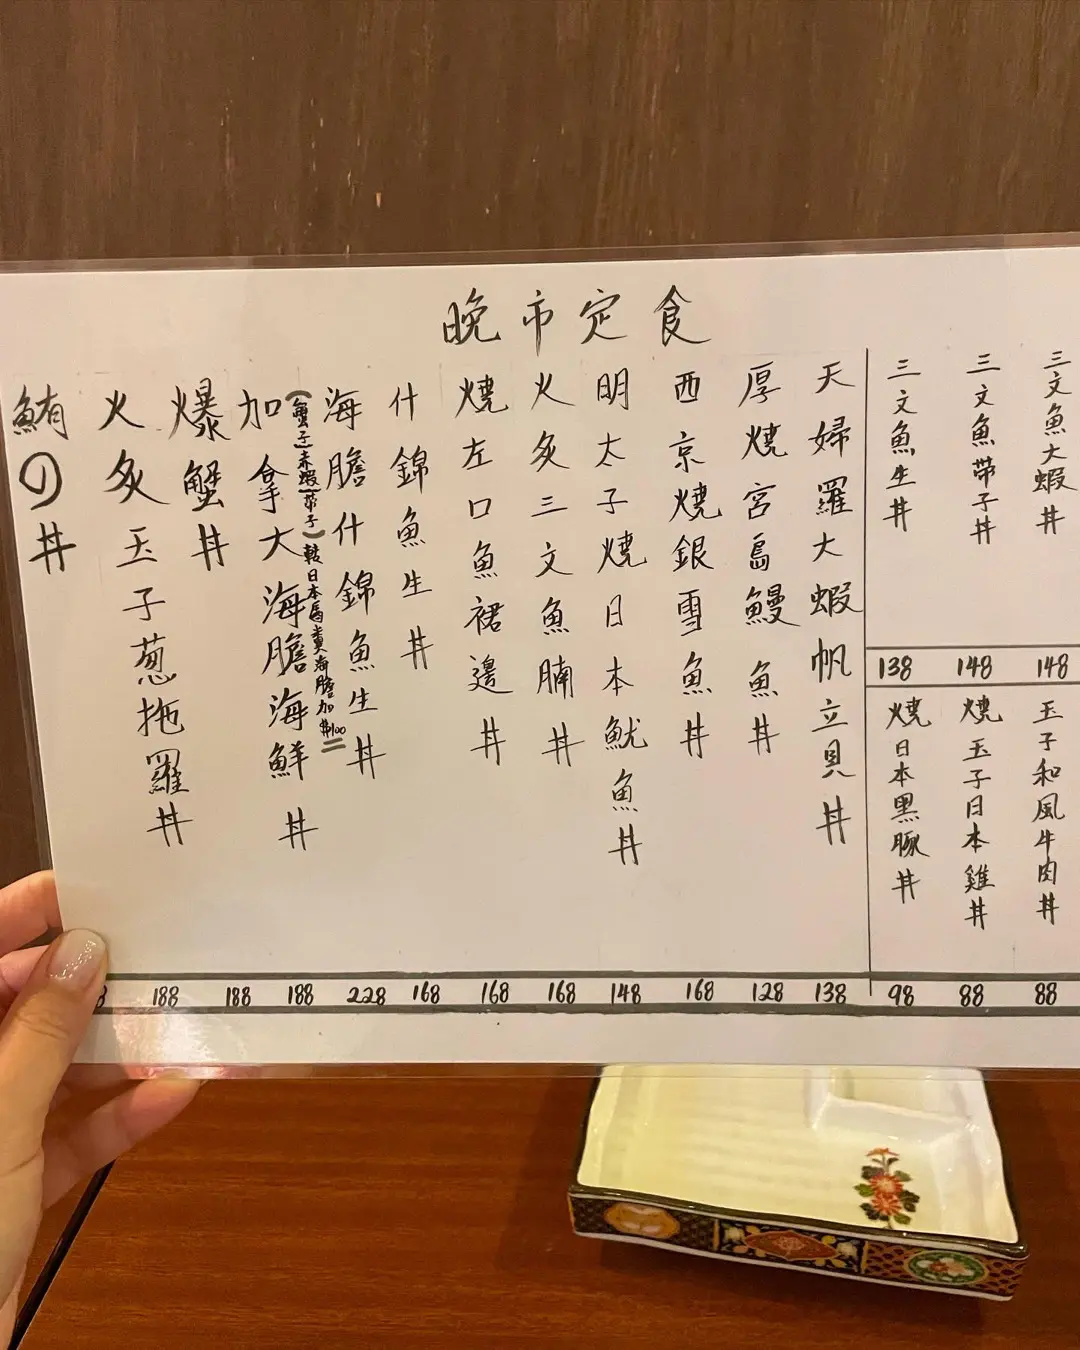 晚市定食
三文魚大蝦丼
148
三文魚帶子丼
148
三文魚生丼
138
玉子和風牛肉丼
88
燒玉子日本雞丼
88
燒日本黑豚丼
98
天婦羅大蝦帆立貝丼
138
厚燒宮島鰻魚丼
128
西京燒銀雪魚丼
168
明太子燒日本魷魚丼
148
火炙三文魚腩丼
168
燒左口魚裙邊丼
168
什錦魚生丼
168
海膽什錦魚生丼
228
(蟹子,赤蝦,帶子)轉日本馬糞海膽加$100
加拿大海膽海鮮丼
188
爆蟹丼
188
火炙玉子葱拖羅丼
188
鮪の丼